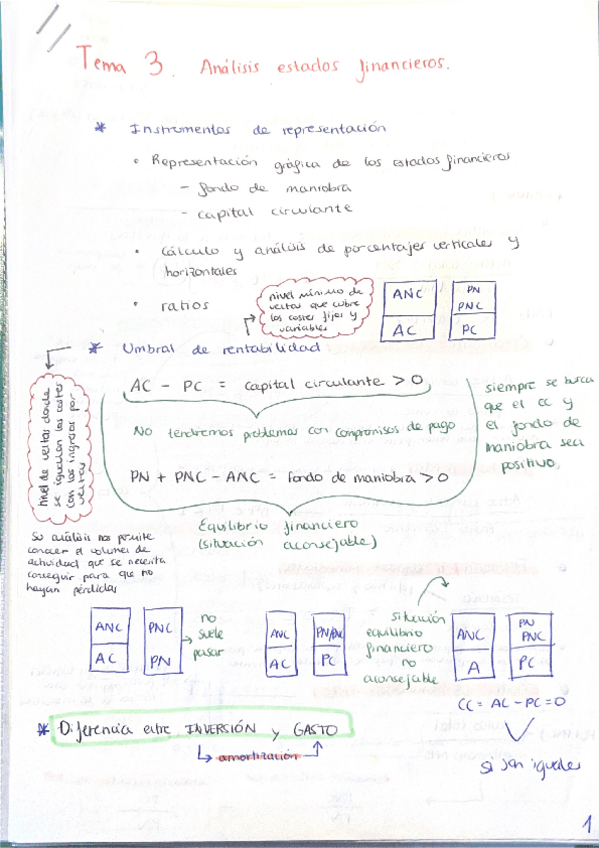 Tema 3. Análisis estados financieros.
* Instrumentos de representación
• Representación gráfica de los estados financieros
- fondo de maniobra
- capital circulante
• Cálculo y análisis de porcentajes verticales y
horizontales
• ratios
nivel mínimo de
ventas que cubre
los costes fijos y
variables
ANC
AC
PN
PNC
PC
* Umbral de rentabilidad
Nivel de ventas donde
se igualan los costes
con los ingresos por
ventas
AC - PC = capital circulante > 0
No tendremos problemas con compromisos de pago
PN + PNC - ANC = fondo de maniobra > 0
Equilibrio financiero
(situación aconsejable)
siempre se busca
que el CC y
el fondo de
maniobra sea
positivo,
Su análisis nos permite
conocer el volumen de
actividad que se necesita
conseguir para que no
hayan pérdidas
ANC
AC
PNC
PN
no
suele
pasar
ANC
AC
PN/PNC
PC
situación
equilibrio
financiero
no
aconsejable
ANC
A
PN
PNC
PC
CC = AC - PC = 0
si son iguales
* Diferencia entre INVERSIÓN y GASTO
amortización
1